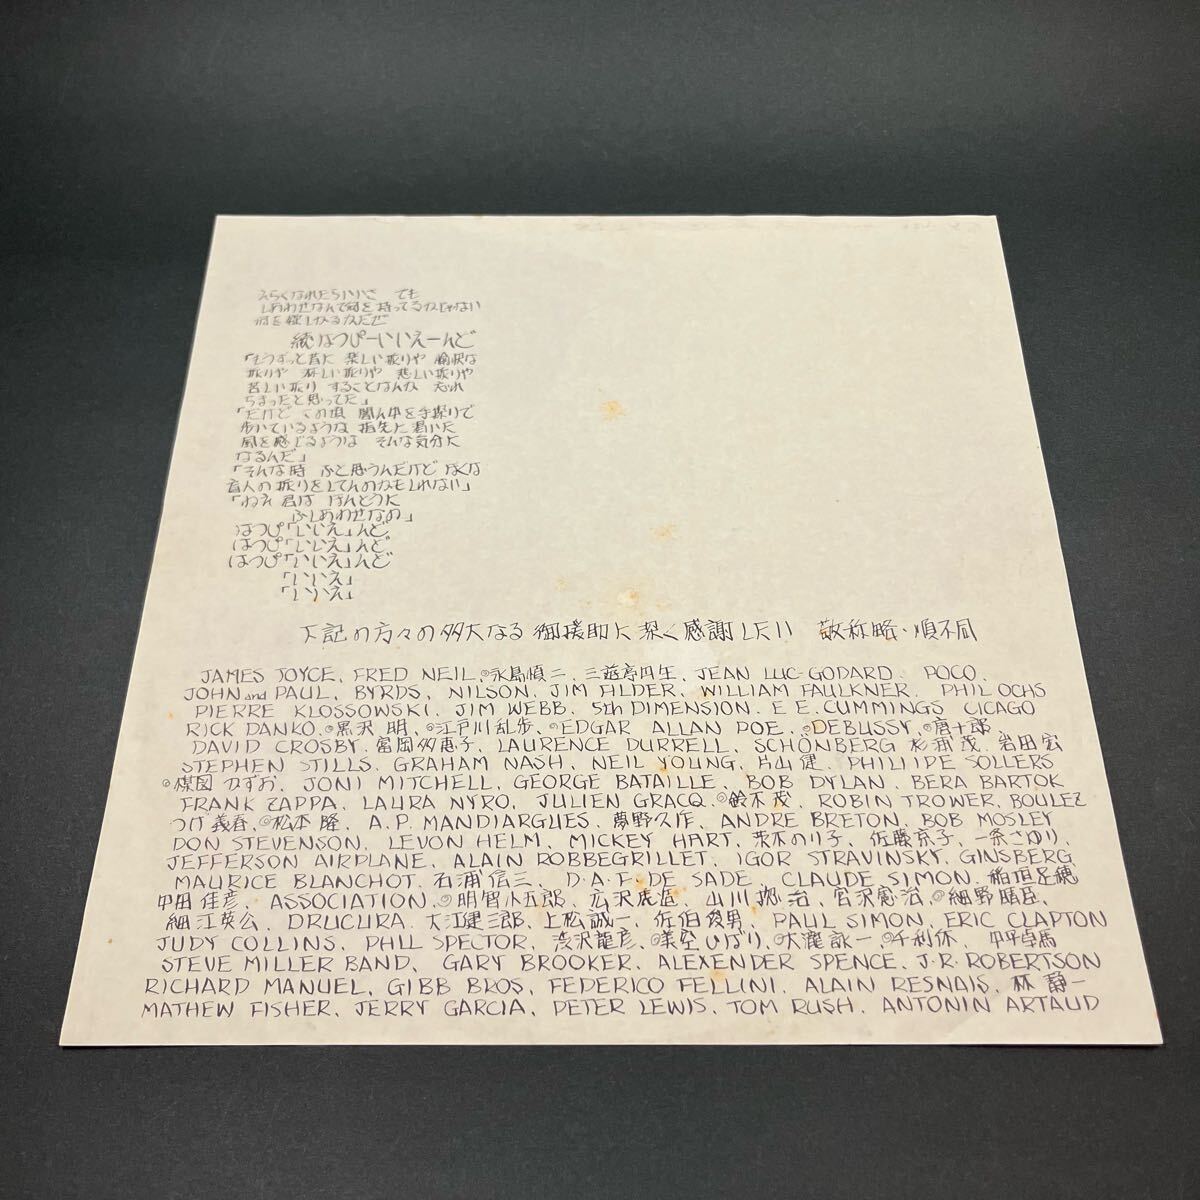 えらくなれたらいいさ でも
しあわせなんて何を持ってるかじゃない
何を欲しがるかだぜ
続はっぴーいいえーんど
「もうずっと昔に 楽しい振りや 愉快な
振りや 淋しい振りや 悲しい振りや
苦しい振り することなんか 忘れ
ちまったと思ってた」
「だけど この頃 闇ん中を手探りで
歩いているような 指先に渇いた
風を感じるような そんな気分に
なるんだ」
「そんな時 ふと思うんだけど ぼくは
盲人の振りをしてんのかもしれない」
「ねえ 君は ほんとうに
ふしあわせなの」
はっぴ「いいえ」んど
はっぴ「いいえ」んど
はっぴ「いいえ」んど
「いいえ」
「いいえ」
下記の方々の多大なる御援助に深く感謝したい 敬称略・順不同
JAMES JOYCE、FRED NEIL、◎永島慎二、三遊亭円生、JEAN LUC-GODARD、POCO、
JOHN and PAUL、BYRDS、NILSON、JIM FILDER、WILLIAM FAULKNER、PHIL OCHS
PIERRE KLOSSOWSKI、JIM WEBB、5th DIMENSION、E.E.CUMMINGS CICAGO
RICK DANKO、◎黒沢 明、◎江戸川乱歩、◎EDGAR ALLAN POE、◎DEBUSSY、◎唐十郎
DAVID CROSBY、富岡多恵子、LAURENCE DURRELL、SCHÖNBERG 杉浦茂、岩田宏
STEPHEN STILLS、GRAHAM NASH、NEIL YOUNG、片山健、PHILIPE SOLLERS
◎楳図かずお、JONI MITCHELL、GEORGE BATAILLE、BOB DYLAN、BERA BARTOK
FRANK ZAPPA、LAURA NYRO、JULIEN GRACQ、◎鈴木茂、ROBIN TROWER、BOULEZ
つげ義春、◎松本隆、A.P.MANDIARGUES、夢野久作、ANDRE BRETON、BOB MOSLEY
DON STEVENSON、LEVON HELM、MICKEY HART、茨木のり子、佐藤京子、一条さゆり、
JEFFERSON AIRPLANE、ALAIN ROBBEGRILLET、IGOR STRAVINSKY、GINSBERG
MAURICE BLANCHOT、石浦信三、D・A・F・DE SADE、CLAUDE SIMON、稲垣足穂
甲田佳彦、ASSOCIATION、◎明智小五郎、広沢虎造、山川惣治、宮沢憲治、◎細野晴臣、
細江英公、DRUCURA、大江健三郎、上松誠一、佐伯俊男、PAUL SIMON、ERIC CLAPTON
JUDY COLLINS、PHLL SPECTOR、渋沢龍彦、◎美空ひばり、◎大瀧詠一、◎千利休、中平卓馬
STEVE MILLER BAND、GARY BROOKER、ALEXENDER SPENCE、J・R・ROBERTSON
RICHARD MANUEL、GIBB BROS、FEDERICO FELLINI、ALAIN RESNAIS、林 静一
MATHEW FISHER、JERRY GARCIA、PETER LEWIS、TOM RUSH、ANTONIN ARTAUD